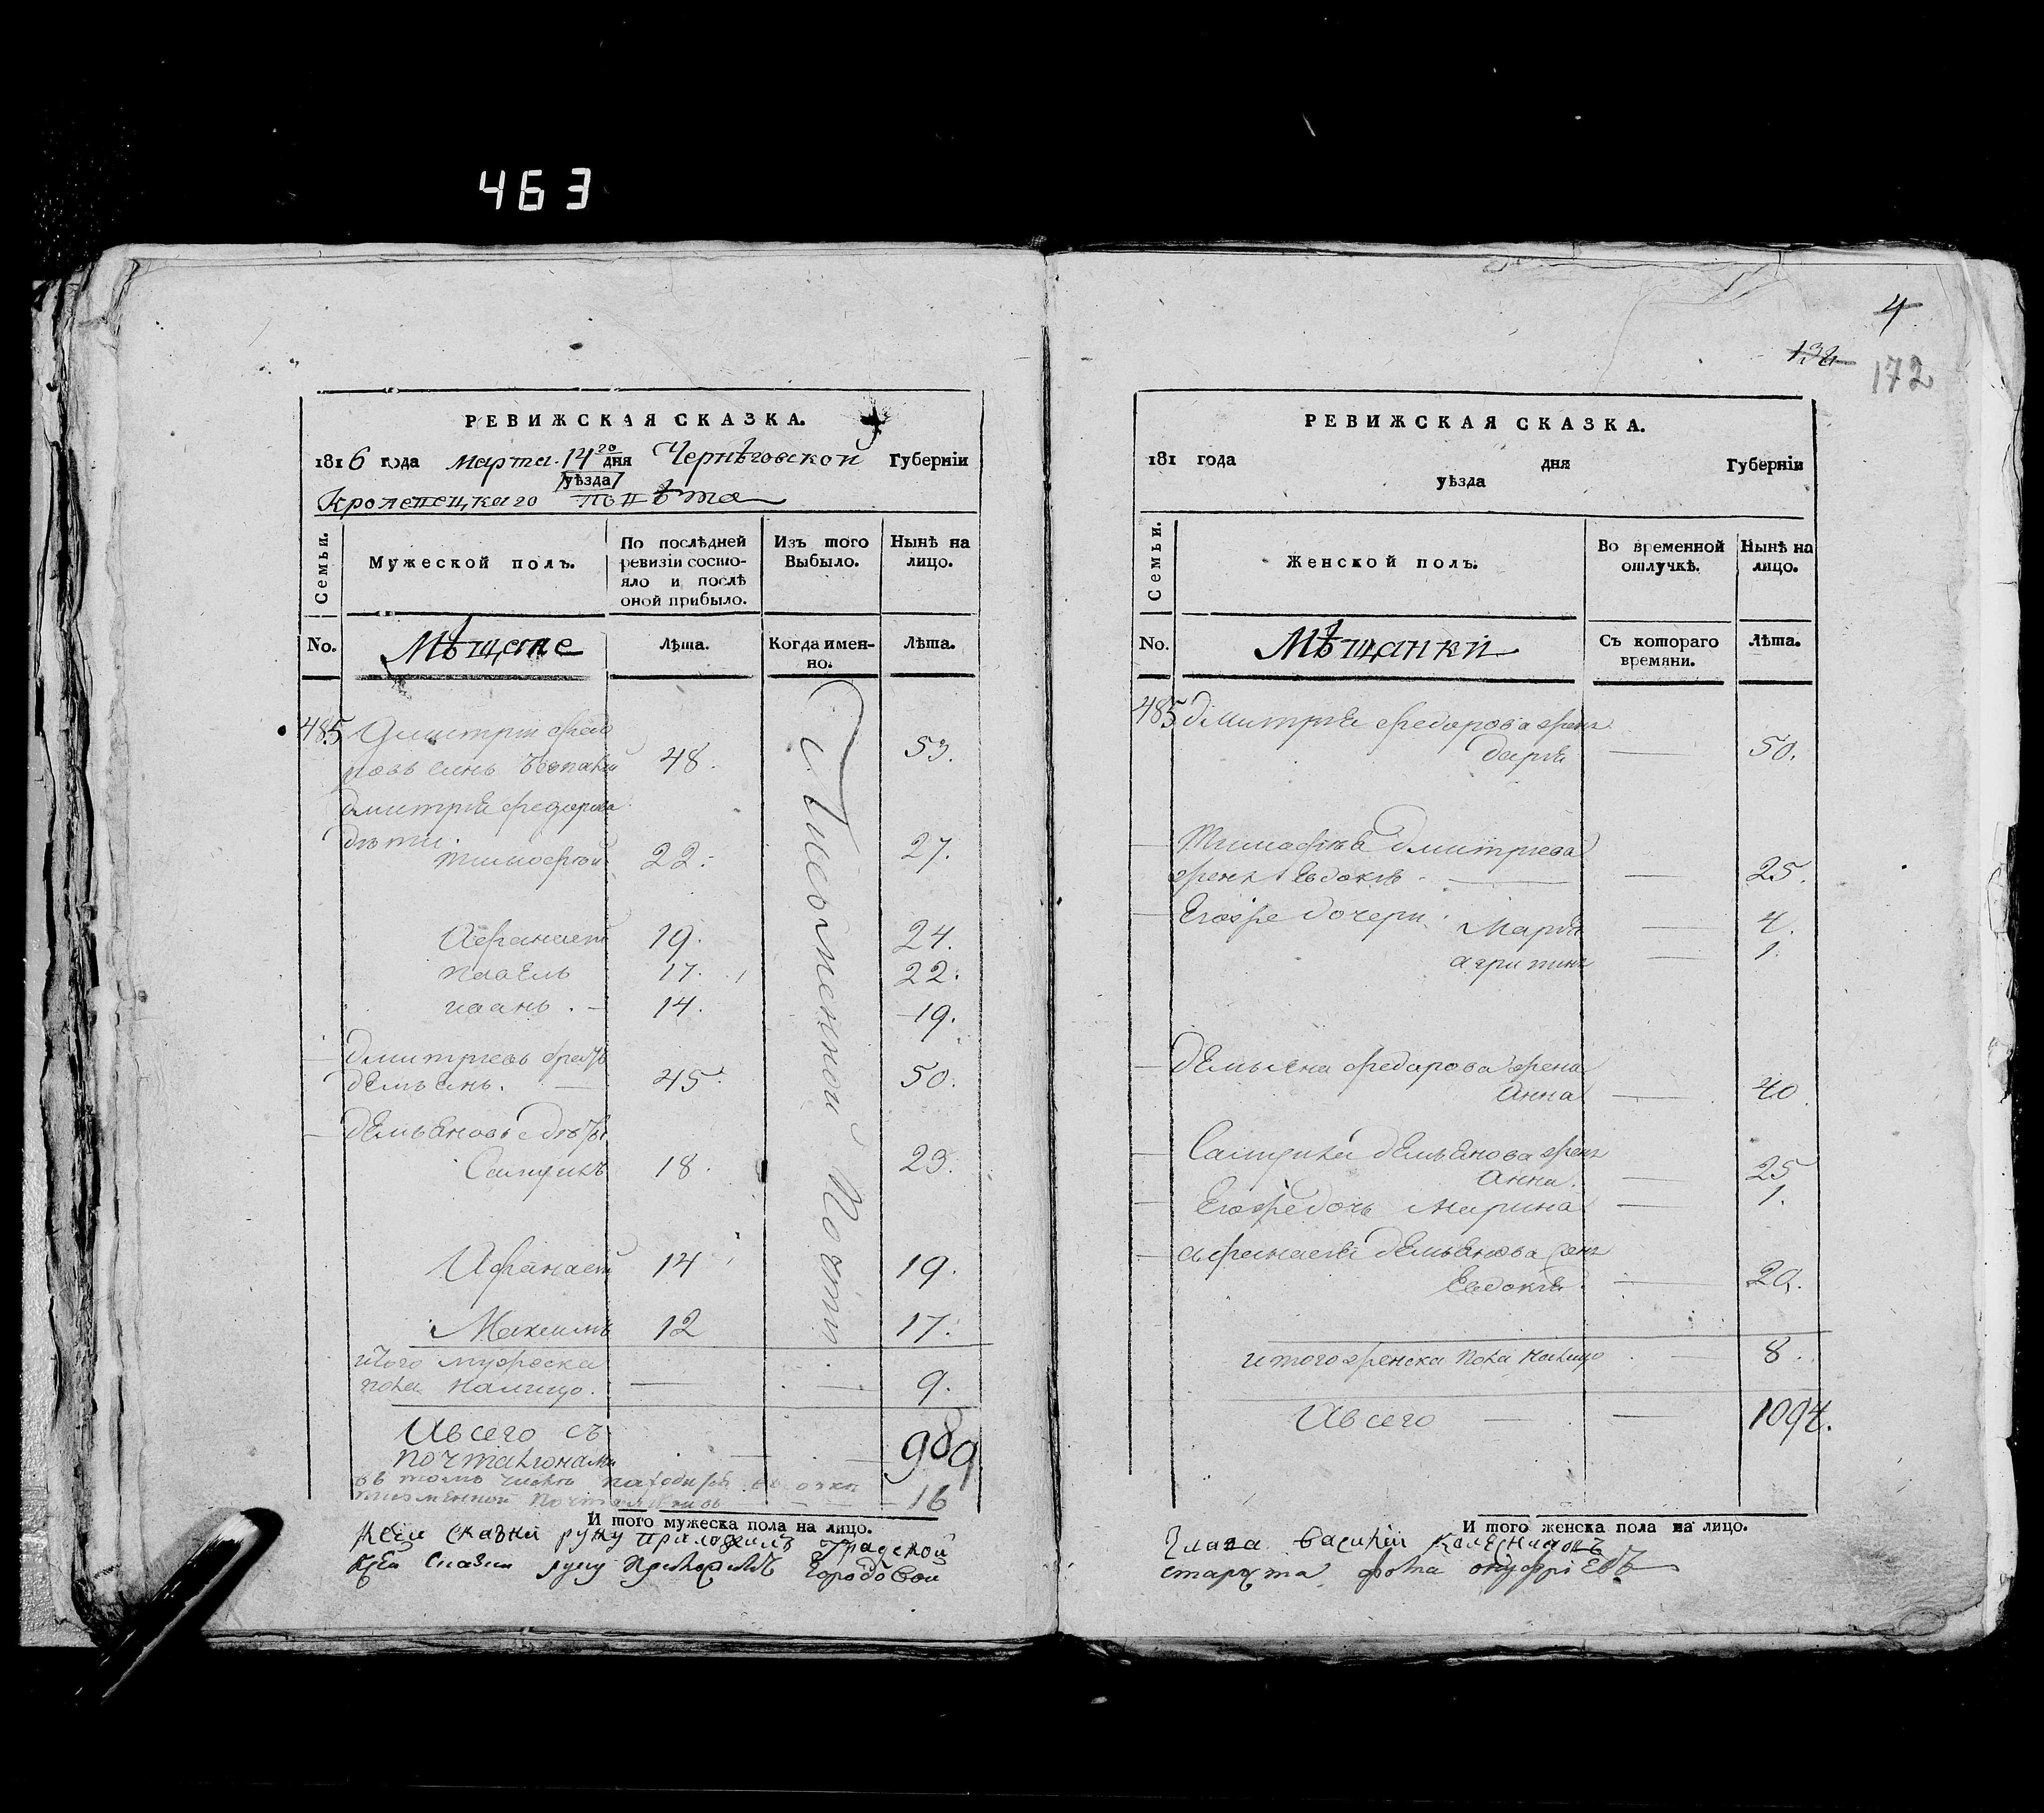 463
РЕВИЖСКАЯ СКАЗКА.
1816 года марта 14 20 дня Чернѣговской Губерніи
уѣзда
Кролевецкаго повѣта
Семьи.
Мужеской полъ.
По послѣдней ревизіи состо-
яло и послѣ
оной прибыло.
Изъ того
Выбыло.
Нынѣ на
лицо.
No.
Мѣщане
Лѣта.
Когда имен-
но.
Лѣта.
485 Дмитрій Федо
ровъ синъ 48. 53.
Дмитрія Федорова
дѣти.
Тимофѣй 22. 27.
Афанасей 19. 24.
Павелъ 17. 22.
Иванъ. 14. 19.
Дмитріевъ братъ
Демьянъ. 45. 50.
Демьяновы дѣти
18. 23.
Афанасей 14 19.
Максимъ 12 17.
Писменной почти
итого мужеска
пола налицо. 9.
Авсего съ
почталіонами 989
въ томъ числѣ
писменной 16
И того мужеска пола на лицо.
Ксей сказки руку приложилъ Градской
Ксей сказки руку приложилъ городовой
4
132
172
РЕВИЖСКАЯ СКАЗКА.
181 года дня Губерніи
уѣзда
Семьи.
Женской полъ.
Во временной
отлучкѣ.
Нынѣ на
лицо.
No.
Мѣщанки
Съ котораго
времяни.
Лѣта.
485 Дмитрія Федорова жена
Дарія 50.
Тимофѣя Дмитріева
жена Евдокія 25.
Егоже дочери Марія 4.
Агрипина 1.
Демьяна Федорова жена
Анна 40
Демьянова жена
Анна. 25
Егоже дочь Марина 1.
Афанасія Демьянова жена
Евдокія. 20.
итого женска пола налицо 8.
Авсего 1094.
И того женска пола на лицо.
Глава Василій Колесниковъ
староста Фома Онуфріевъ